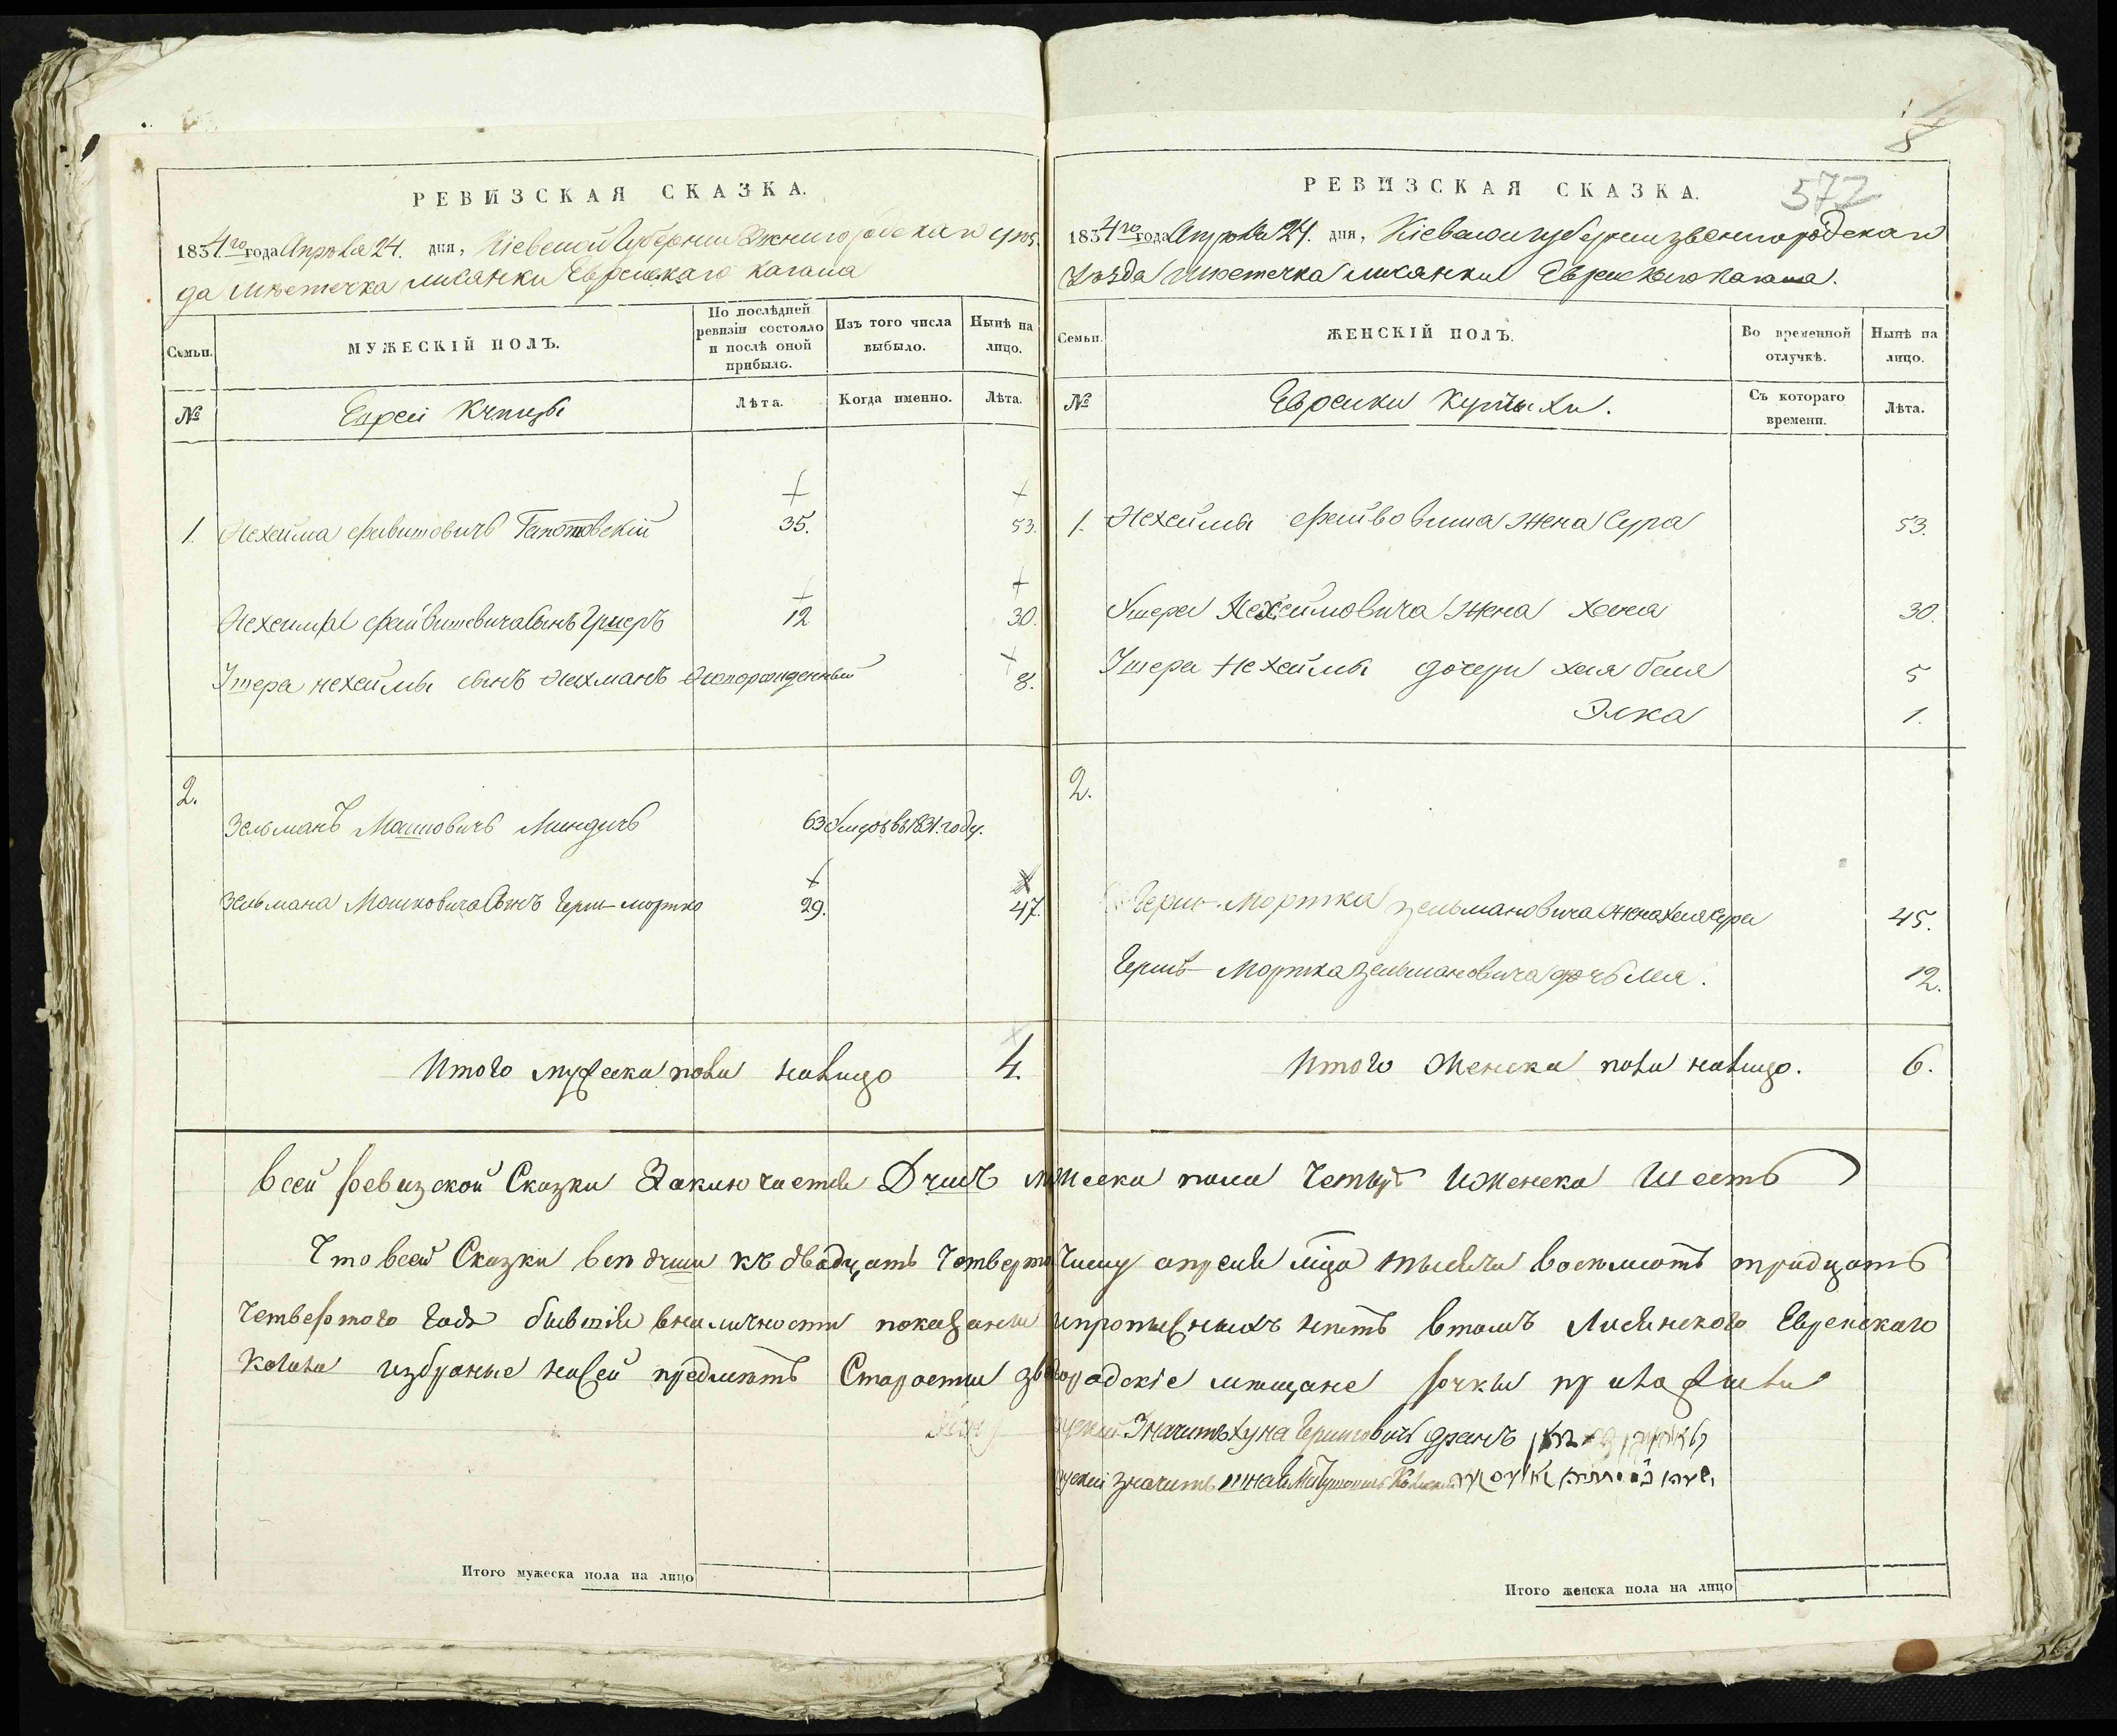 РЕВИЗСКАЯ СКАЗКА.
1834го года Апреля 24. дня, Кіевской Губернии Звенигородскаго уѣз
да Мѣстечка Лисянки Еврейскаго Кагала
Семьи.
МУЖЕСКІЙ ПОЛЪ.
По послѣдней ревизіи состояло и послѣ оной прибыло.
Изъ того числа выбыло.
Нынѣ на лицо.
№
Евреи Купцы
Лѣта.
Когда именно.
Лѣта.
1. Нехейма Фейвишовичъ 35. 53.
Нехеймы Фейвишевича сынъ Ушеръ 12 30.
Ушера Нехеймы сынъ Нахманъ новорожденный 8.
2.
Зельманъ Мошковичъ Миндичъ 63 Умеръ въ 1831. году.
Зельмана Мошковича Сынъ Герш-Мортко 29. 47.
Итого мужеска пола налицо 4.
РЕВИЗСКАЯ СКАЗКА.
572
8
1834го года Апреля 24. дня, Кіевской губернии звенигородскаго
Уѣзда Мѣстечка Лисянки Еврейского Кагала.
Семьи.
ЖЕНСКІЙ ПОЛЪ.
Во временной отлучкѣ.
Нынѣ на лицо.
№
Еврейки Купчихи.
Съ котораго времени.
Лѣта.
1. Нехеймы Фейвовиша жена Сура 53.
Ушера Нехеймовича жена Хана 30.
Ушера Нехеймы дочери Хая бейля 5
Элка 1.
2.
Герш-Мортка Зельмановича жена Хая Сура 45.
Гершъ-Мортка Зельмановича дочь Лея. 12.
Итого Женска пола налицо. 6.
В сей ревизской Сказки Заключается Душъ мужеска пола четыре и женска шесть
Что в сей Сказки все души къ двадцать четверто числу апреля мца тысяча восемьсотъ тридцать
четвертого года бывшіе вналичности показаны и прописныхъ нѣтъ в томъ Лисянского Еврейскаго
Кагала избраные на сей предмѣтъ Старосты звенигородскіе мещане руки приложили
Значитъ Хуна Гершковичъ
значитъ
Итого мужеска пола на лицо
Итого женска пола на лицо